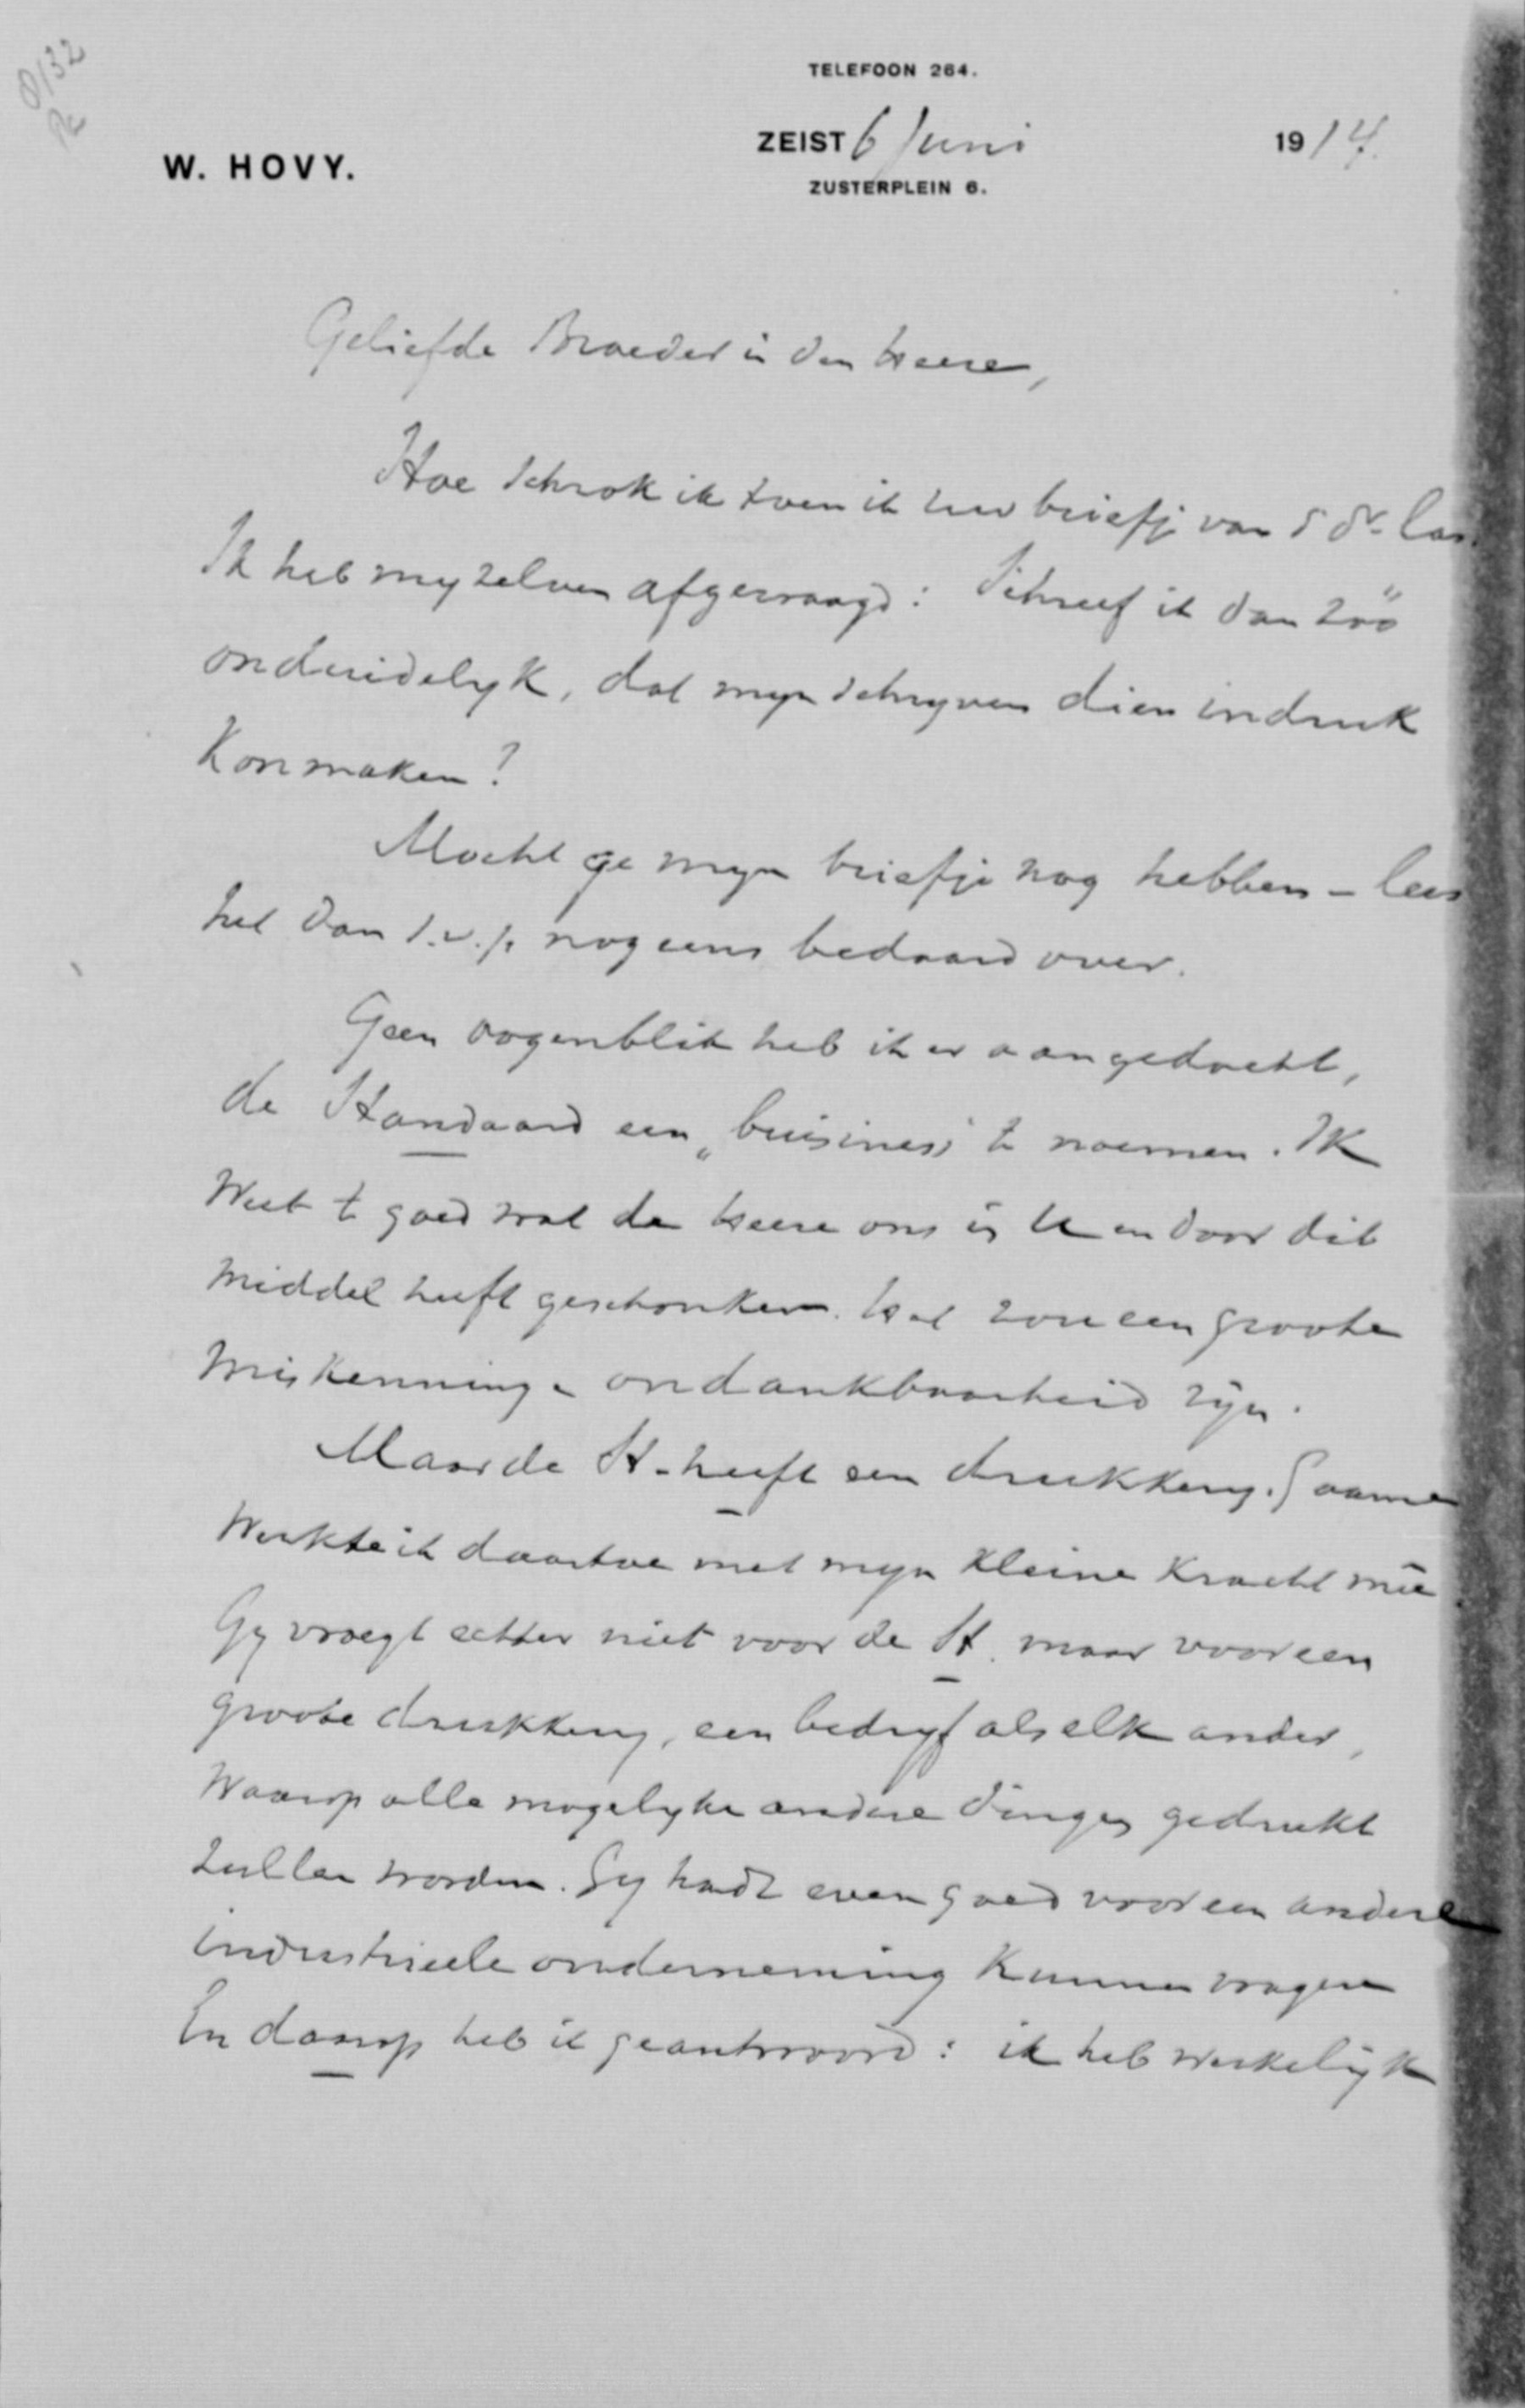 TELEFOON 264.
ZEIST 6 Juni 1914.
W. HOVY.
ZUSTERPLEIN 6.
Geliefde Broeder in den Heere,
Hoe schrok ik toen ik uw briefje van 5 dr. las.
Ik heb myzelven afgevraagd: Schreef ik dan zóó
onduidelyk, dat myn schryven dien indruk
kon maken?
Mocht ge myn briefje nog hebben – lees
het dan s.v.p. nog eens bedaard over.
Geen oogenblik heb ik er aan gedacht,
de Standaard een „buisiness" te noemen. Ik
weet te goed wat de Heere ons in U en door dit
middel heeft geschonken. Het zou een groote
miskenning en ondankbaarheid zyn.
Maar de St. heeft een drukkery. Gaarne
werkte ik daartoe met myn kleine kracht mee.
Gy vraegt echter niet voor de St. maar voor een
groote drukkery, een bedryf als elk ander,
waarop alle mogelyke andere dingen gedrukt
zullen worden. Gy hadt even goed voor een andere
industrieele onderneming kunnen vragen
En daarop heb ik geantwoord: ik heb werkelijk